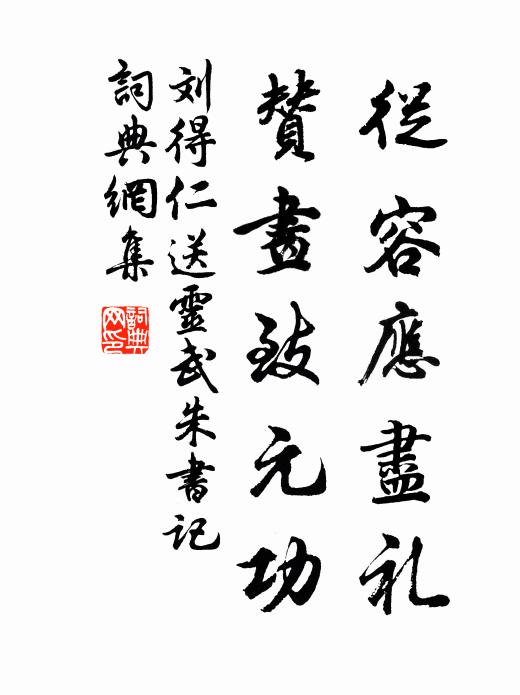 從容應盡礼
贊畫致元功
刘得仁送靈武朱書記
詞典網集
詞典網印